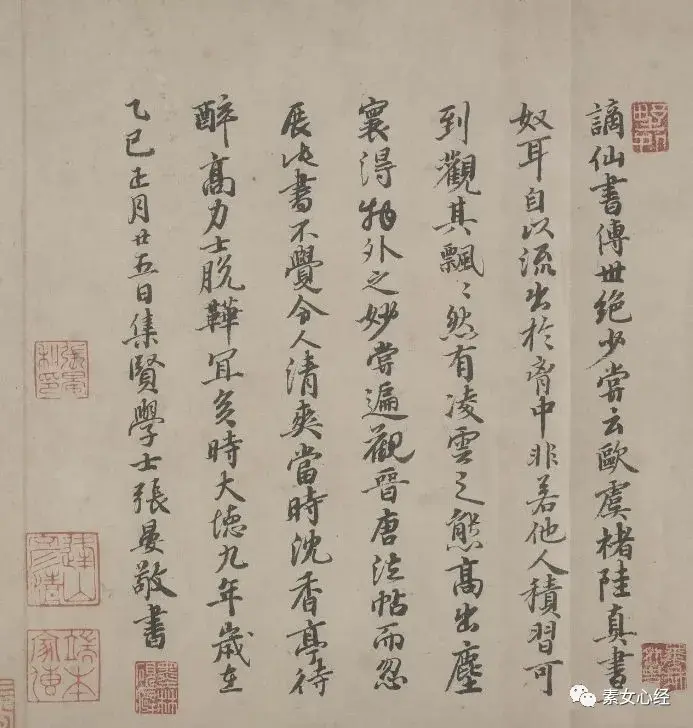 謫仙書傳世絕少嘗云歐虞褚陸真書
奴耳自以流出於胷中非若他人積習可
到觀其飄〻然有凌雲之態高出塵
寰得物外之妙嘗遍觀晉唐法帖而忽
展此書不覺令人清爽當時沈香亭待
醉高力士脫鞾宜矣時大德九年歲在
乙巳正月廿五日集賢學士張晏敬書
張晏
私印
端本
家傳
素女心经